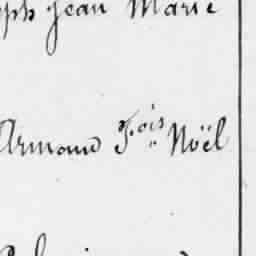 ph Jean Marie
Armand F.ois Noël